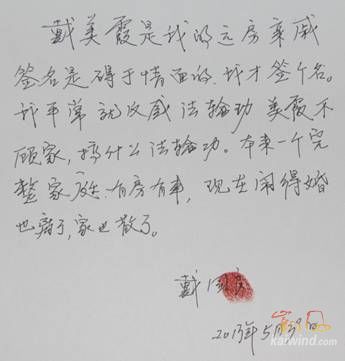 戴美霞是我的远房亲戚
签名是碍于情面的，我才签个名。
我平常就反感法轮功 美霞不
顾家，搞什么法轮功。本来一个完
整家庭，有房有车，现在闹得婚
也离了，家也散了。
戴
2013年5月29日
kaiwind.com